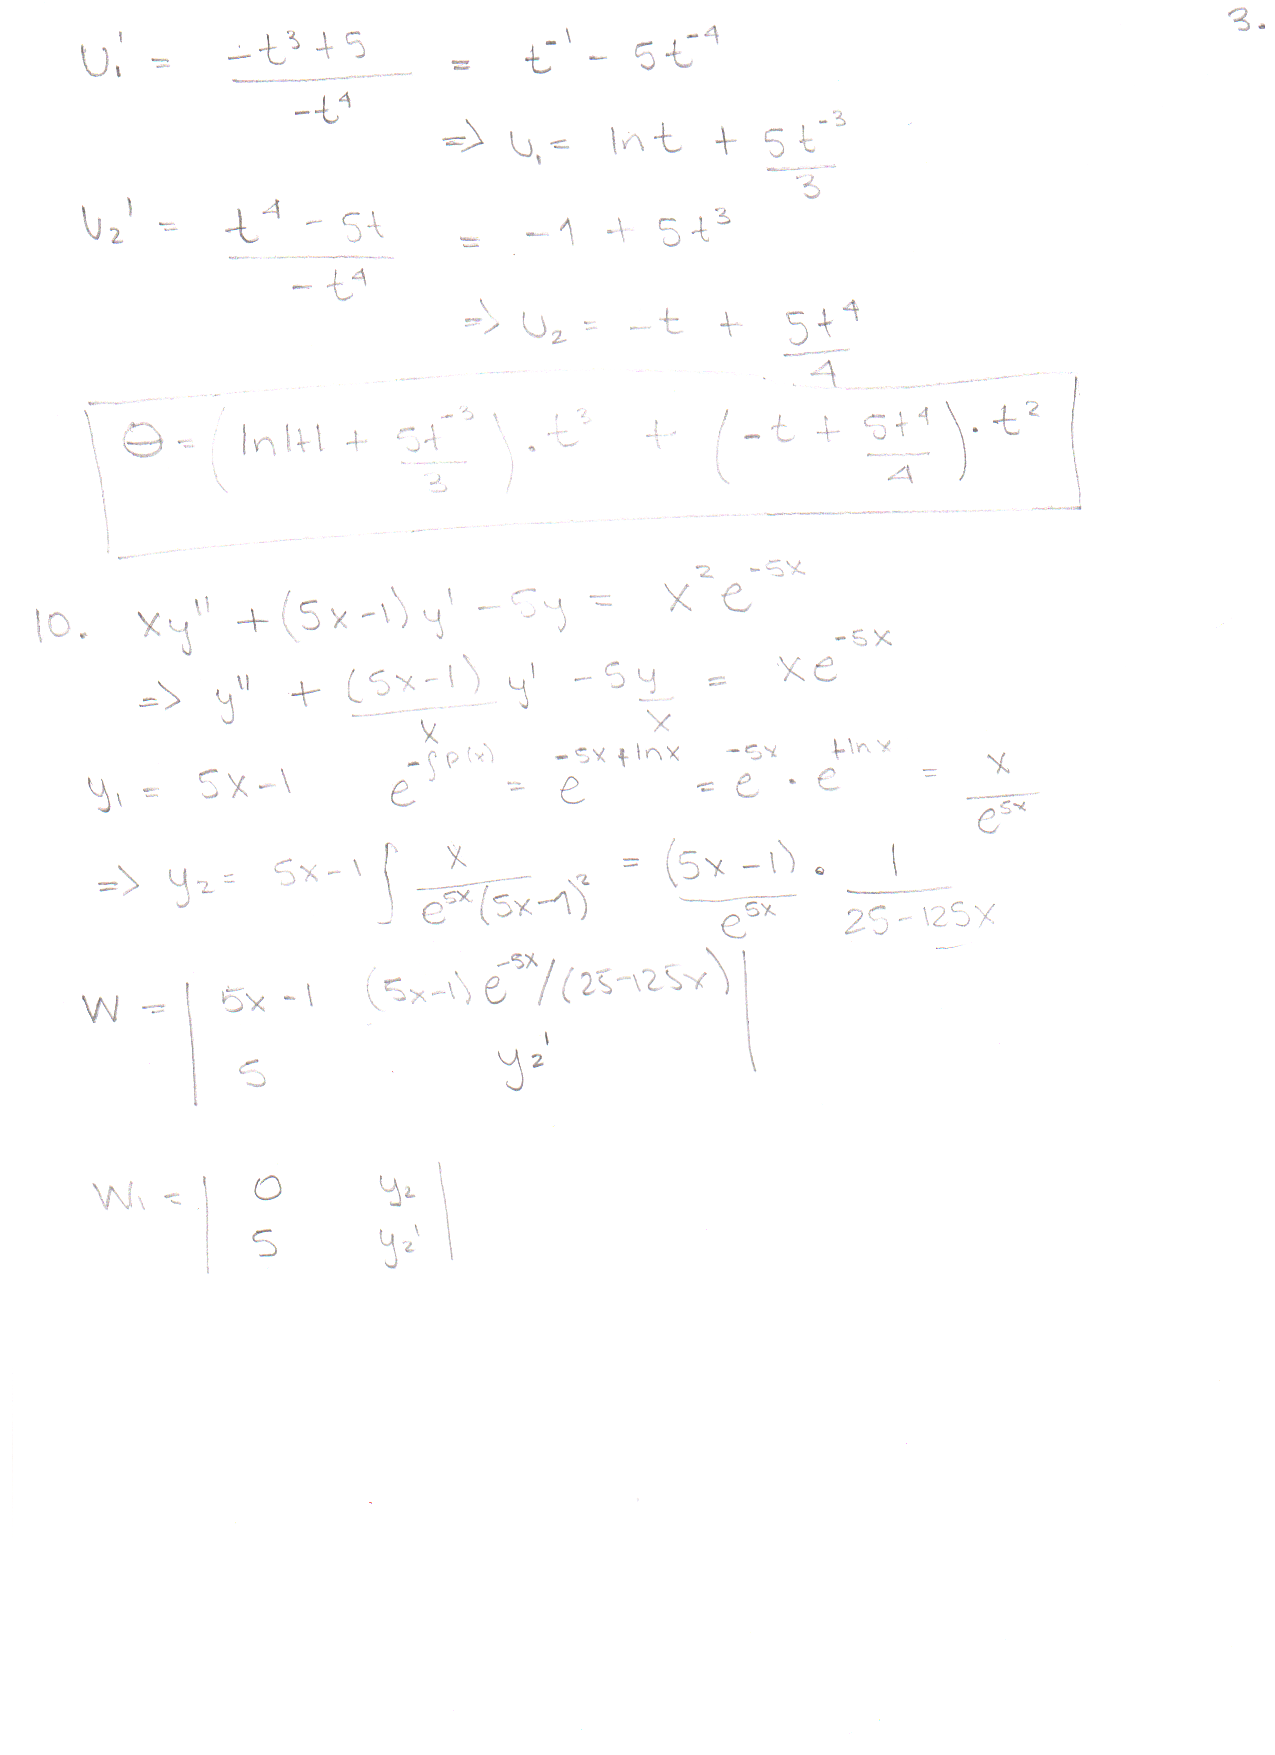 3.
U₁' = (-t³+5)/(-t⁴) = t⁻¹ - 5t⁻⁴
=> U₁ = ln t + 5t⁻³/3
U₂' = (t⁴ - 5t)/(-t⁴) = -1 + 5t³
=> U₂ = -t + 5t⁴/4
Θ = (ln|t| + 5t⁻³/3) . t³ + (-t + 5t⁴/4) . t²
10. xy'' + (5x-1) y' - 5y = x²e⁻⁵ˣ
=> y'' + (5x-1)/x y' - 5y/x = xe⁻⁵ˣ
y₁ = 5x-1 e^(-∫p(x)) = e^(-5x+lnx) = e^(-5x) . e^(+lnx) = x/e⁵ˣ
=> y₂ = 5x-1 ∫ x/(e⁵ˣ(5x-1)²) = (5x-1)/e⁵ˣ . 1/(25-125x)
W = | 5x-1 (5x-1)e⁻⁵ˣ/(25-125x) |
5 y₂'
W₁ = | 0 y₂ |
5 y₂'